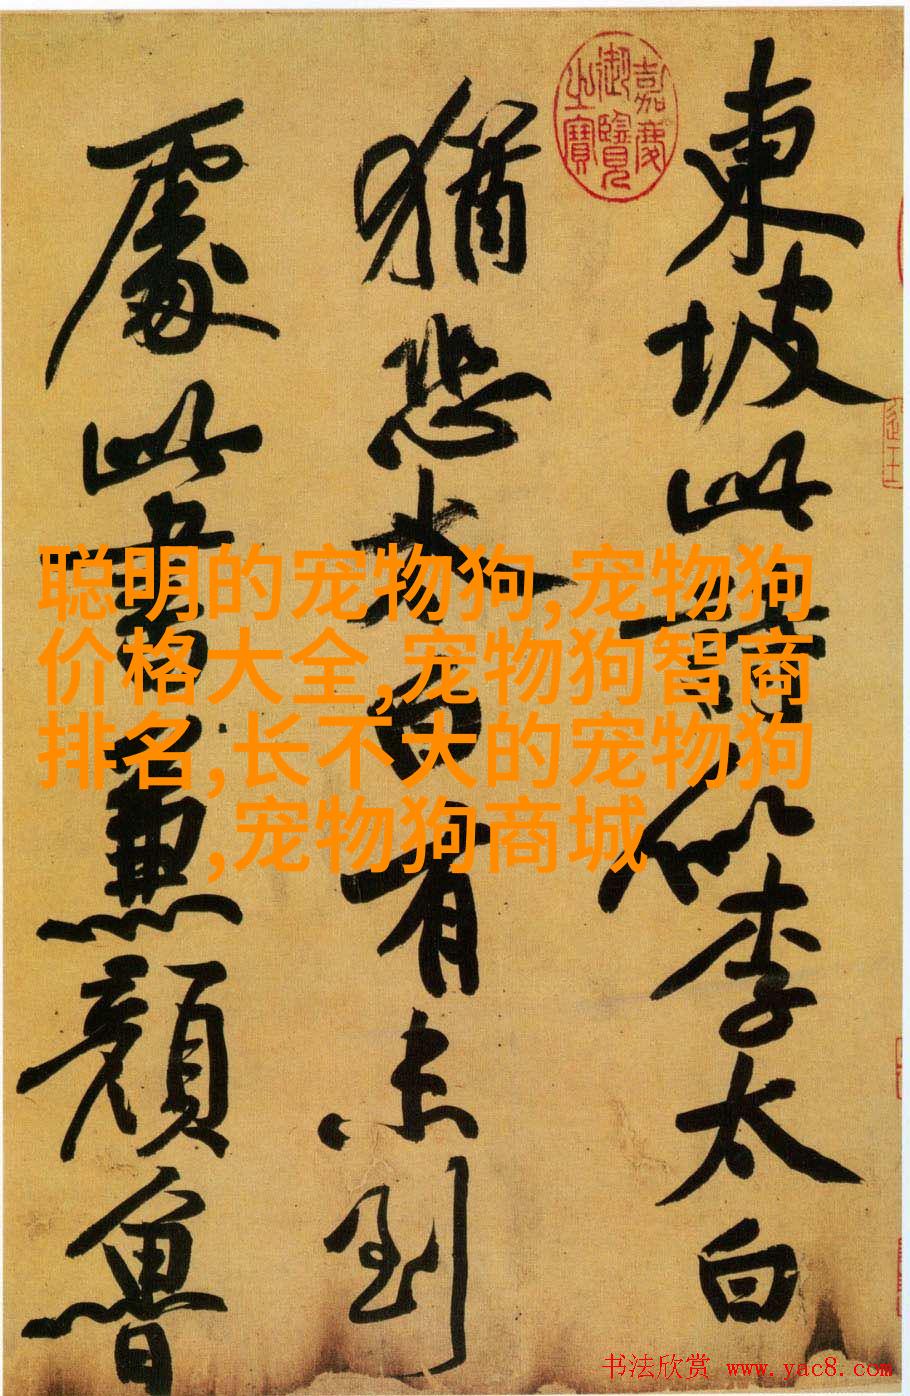 東坡此詩似李太白
猶恐太白有未到
處此書兼顏魯
嘉慶
御覽
之寶
聪明的宠物狗,宠物狗
价格大全,宠物狗智商
排名,长不大的宠物狗
,宠物狗商城
书法欣赏 www.yac8.com